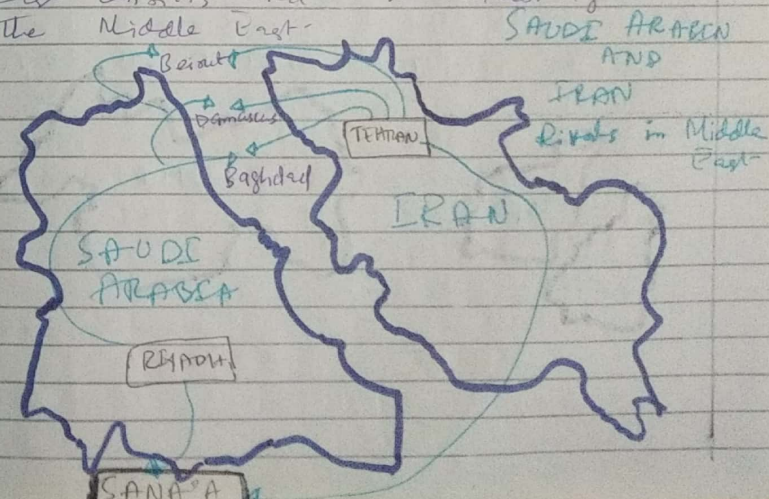 The Middle East-
SAUDI ARABIA
AND
IRAN
Rivals in Middle
East-
Beirut
Damascus
TEHRAN
Baghdad
IRAN
SAUDI
ARABIA
RIYADH
SANA'A